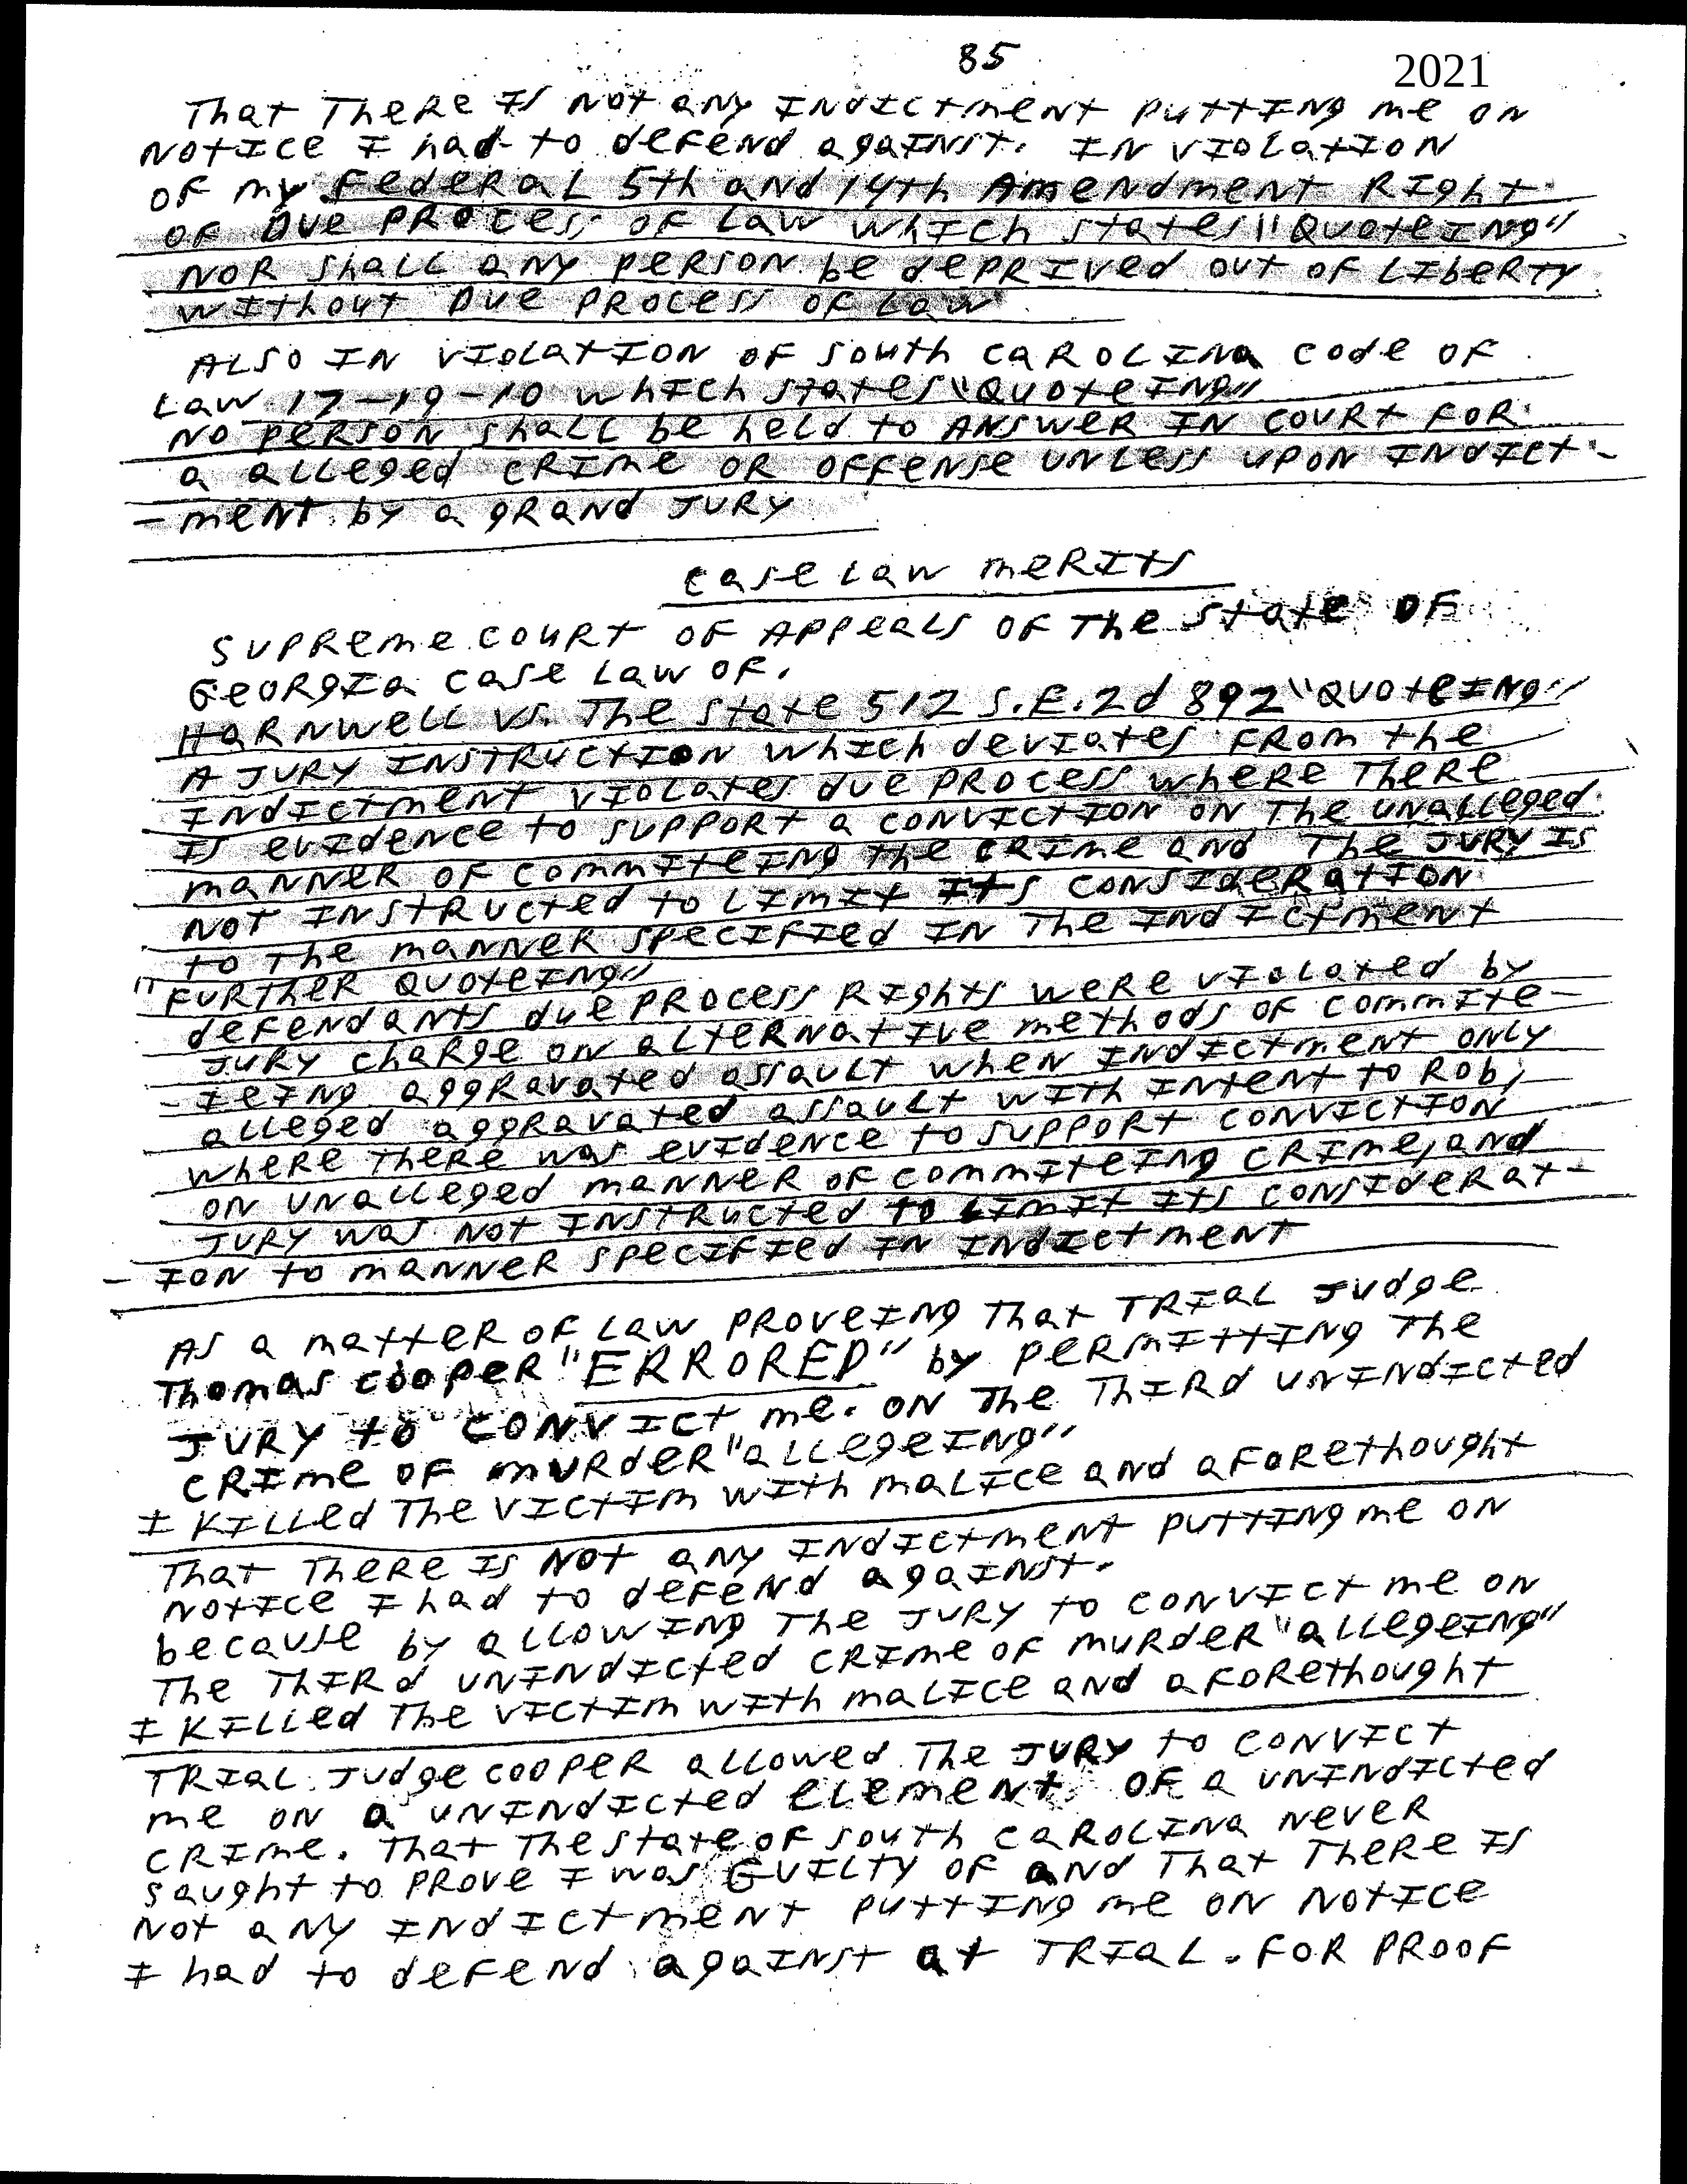 85
2021
That There Is Not any Indictment putting me on
notice I had to defend against. In violation
of my Federal 5th and 14th Amendment Right
of Due Process of Law which states "Quoteing"
Nor shall any person be deprived out of Liberty
without Due Process of Law
Also in violation of South Carolina code of
Law 17-19-10 which states "Quoteing"
No person shall be held to answer in court for
a alleged crime or offense unless upon indict-
-ment by a grand jury
Case Law Merits
Supreme Court of Appeals of The State of
Georgia case law of.
Harnwell vs. The State 512 S.E.2d 892 "Quoteing"
A jury instruction which deviates from the
indictment violates due process where there
is evidence to support a conviction on the unalleged
manner of commiteing the crime and the jury is
not instructed to limit its consideration
to the manner specified in the indictment
"Further Quoteing"
defendants due process rights were violated by
jury charge on alternative methods of commite-
-ieing aggravated assault when indictment only
alleged aggravated assault with intent to rob;
where there was evidence to support conviction
on unalleged manner of commiteing crime, and
jury was not instructed to limit its considerat-
-ion to manner specified in indictment
As a matter of law proveing that trial judge
Thomas Cooper "ERRORED" by permitting the
jury to convict me. on the third unindicted
crime of murder "allegeing"
I killed the victim with malice and aforethought
That there is not any indictment putting me on
notice I had to defend against.
because by allowing the jury to convict me on
the third unindicted crime of murder "allegeing"
I killed the victim with malice and aforethought
Trial judge Cooper allowed the jury to convict
me on a unindicted element of a unindicted
crime. That the State of South Carolina never
saught to prove I was guilty of and that there is
not any indictment putting me on notice
I had to defend against at trial. For proof